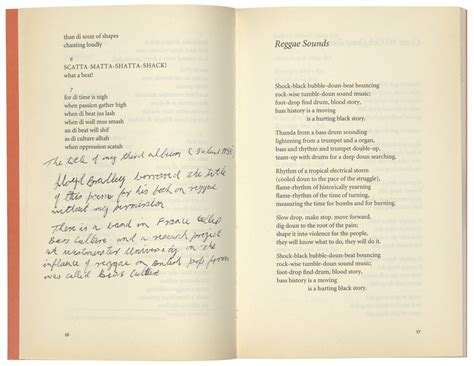 than di soun of shapes
chanting loudly
6
SCATTA-MATTA-SHATTA-SHACK!
what a beat!
7
for di time is nigh
when passion gather high
when di beat jus lash
when di wall mus smash
an di beat will shif
as di culture alltah
when oppression scatah
The title of my third album (Island 1980)
Lloyd Bradley borrowed the title
of this poem for his book on reggae
without my permission
There is a band in France called
Bass Culture and a research project
at Westminster University on the
influence of reggae on British pop forms
was called Bass Culture
16
Reggae Sounds
Shock-black bubble-doun-beat bouncing
rock-wise tumble-doun sound music;
foot-drop find drum, blood story,
bass history is a moving
is a hurting black story.
Thunda from a bass drum sounding
lightening from a trumpet and a organ,
bass and rhythm and trumpet double-up,
team-up with drums for a deep doun searching.
Rhythm of a tropical electrical storm
(cooled doun to the pace of the struggle),
flame-rhythm of historically yearning
flame-rhythm of the time of turning,
measuring the time for bombs and for burning.
Slow drop. make stop. move forward.
dig doun to the root of the pain;
shape it into violence for the people,
they will know what to do, they will do it.
Shock-black bubble-doun-beat bouncing
rock-wise tumble-doun sound music;
foot-drop find drum, blood story,
bass history is a moving
is a hurting black story.
17